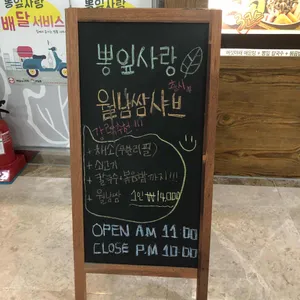 뽕잎사랑
배달서비스
뽕잎사랑
월남쌈샤브
+ 채소(무한리필)
+ 쇠고기
+ 칼국수+볶음밥까지!!!
+ 월남쌈
1인 ₩14,000
OPEN AM 11:00
CLOSE P.M 10:00